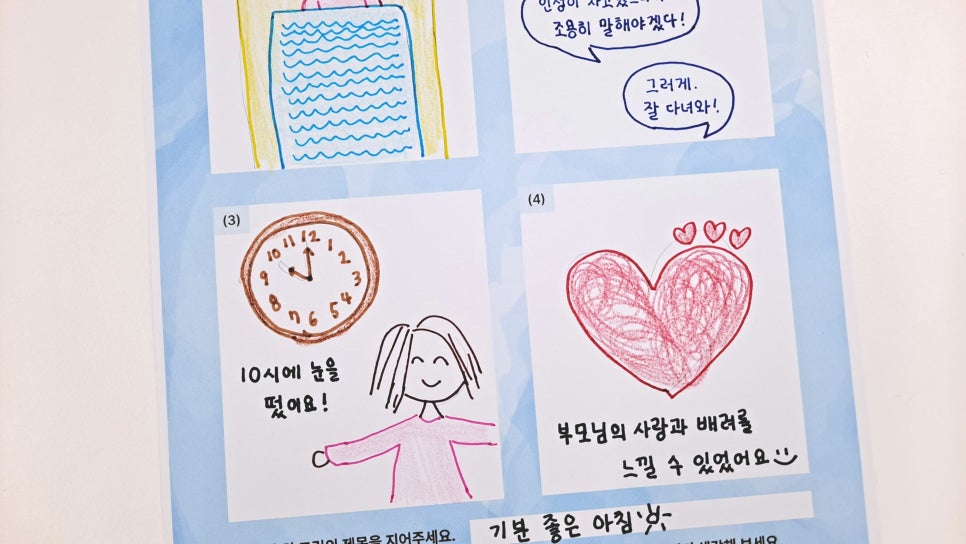 조용히 말해야겠다!
그러게.
잘 다녀와!
(3)
12
11
1
10
2
9
3
8
4
7
5
6
10시에 눈을
떴어요!
(4)
부모님의 사랑과 배려를
느낄 수 있었어요
기분 좋은 아침
제목을 지어주세요.